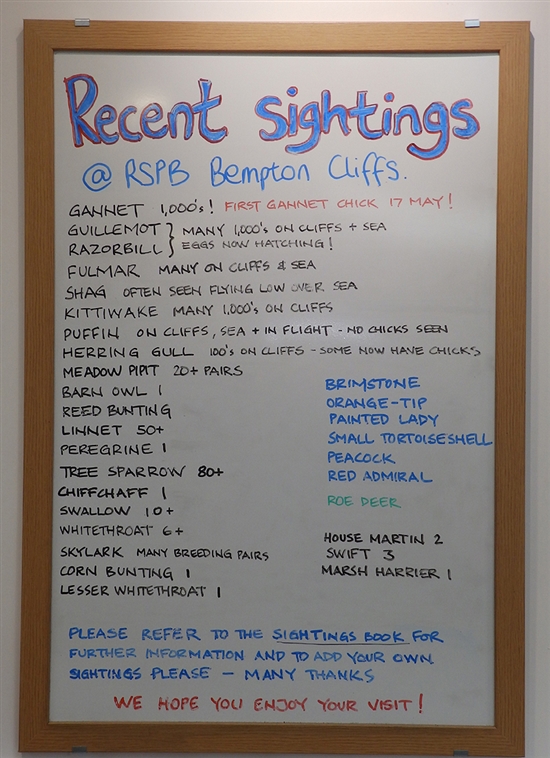 Recent Sightings
@ RSPB Bempton Cliffs.
GANNET 1,000's! FIRST GANNET CHICK 17 MAY!
GUILLEMOT } MANY 1,000's ON CLIFFS + SEA
RAZORBILL } EGGS NOW HATCHING!
FULMAR MANY ON CLIFFS & SEA
SHAG OFTEN SEEN FLYING LOW OVER SEA
KITTIWAKE MANY 1,000's ON CLIFFS
PUFFIN ON CLIFFS, SEA + IN FLIGHT - NO CHICKS SEEN
HERRING GULL 100's ON CLIFFS - SOME NOW HAVE CHICKS
MEADOW PIPIT 20+ PAIRS
BARN OWL 1
REED BUNTING
LINNET 50+
PEREGRINE 1
TREE SPARROW 80+
CHIFFCHAFF 1
SWALLOW 10+
WHITETHROAT 6+
SKYLARK MANY BREEDING PAIRS
CORN BUNTING 1
LESSER WHITETHROAT 1
BRIMSTONE
ORANGE-TIP
PAINTED LADY
SMALL TORTOISESHELL
PEACOCK
RED ADMIRAL
ROE DEER
HOUSE MARTIN 2
SWIFT 3
MARSH HARRIER 1
PLEASE REFER TO THE SIGHTINGS BOOK FOR
FURTHER INFORMATION AND TO ADD YOUR OWN
SIGHTINGS PLEASE - MANY THANKS
WE HOPE YOU ENJOY YOUR VISIT!